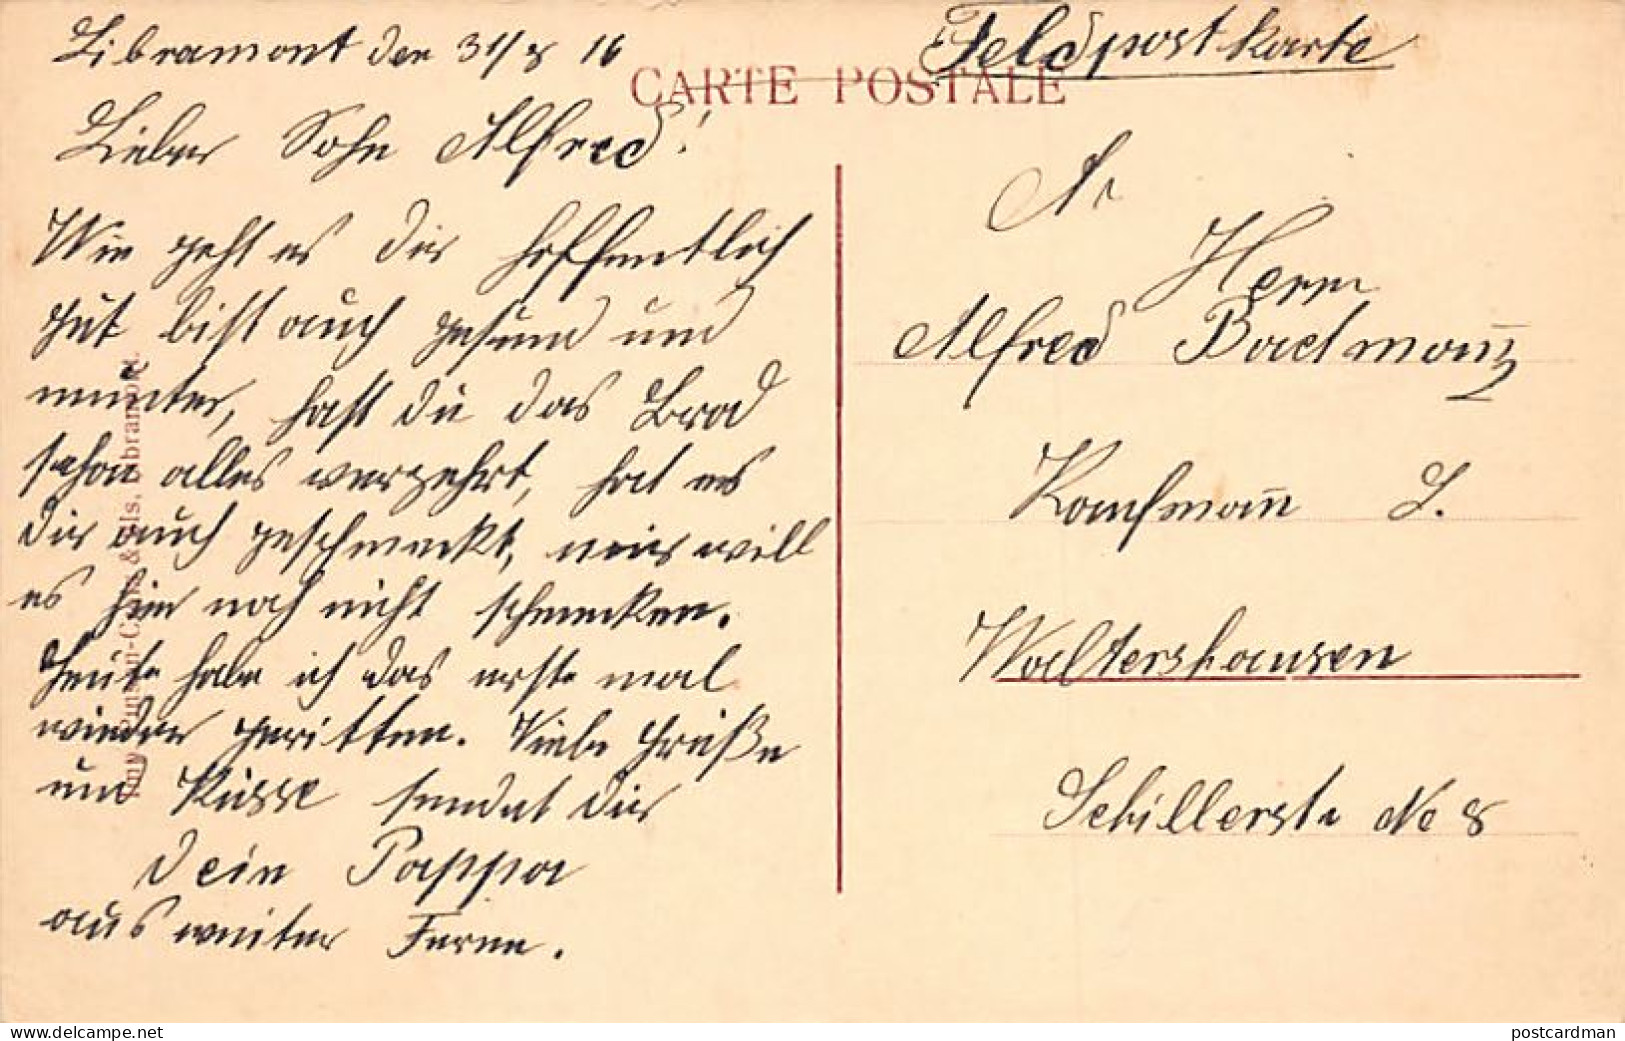 Libramont den 31/8 16
Feldpostkarte
CARTE POSTALE
Lieber Sohn Alfred!
Wie geht es dir hoffentlich
gut bist auch gesund und
munter, hast du das Brod
schon alles verzehrt, hat es
dir auch geschmeckt, mir will
es hier noch nicht schmecken.
Heute habe ich das erste mal
wieder geritten. Viele Grüße
und Küsse sendet dir
Dein Pappa
aus weiter Ferne.
An
Herrn
Alfred
Kaufmann L.
Waltershausen
Schillerstr No 8
Libramont.
www.delcampe.net
postcardman